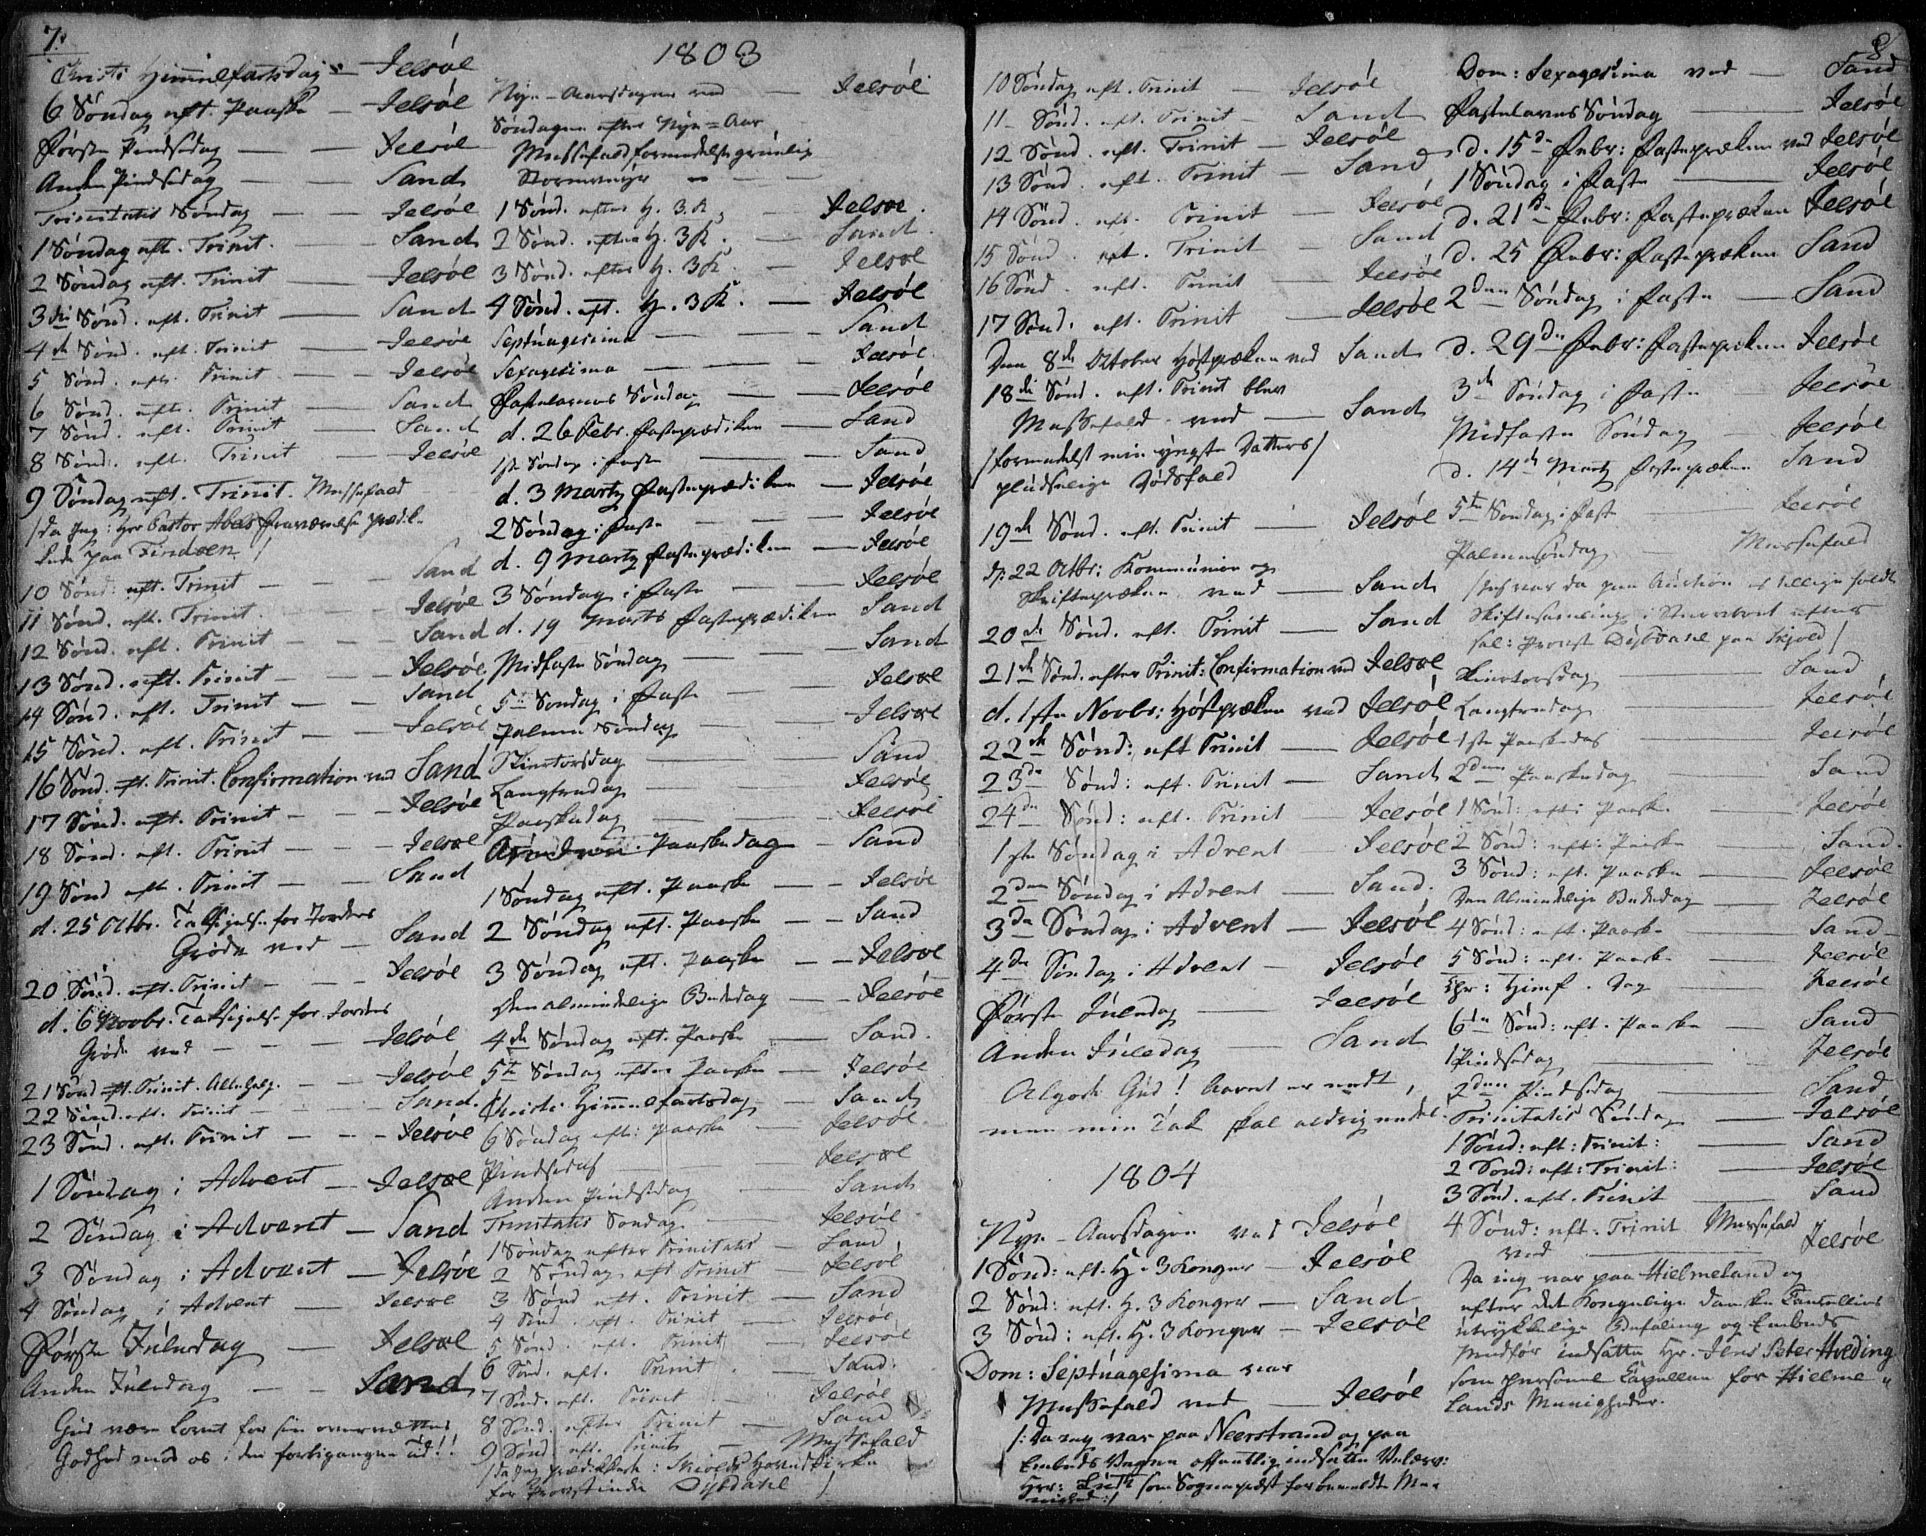 7.
Christi Himmelfartsdag — Jelsöe
6 Söndag eft. Paaske — Jelsöe
Förste Pindsedag — — Jelsöe
Anden Pindsedag — — Sand
Trinitatis Söndag — — Jelsöe
1 Söndag eft. Trinit. — — Sand
2 Söndag eft. Trinit — — Jelsöe
3die Sönd. eft. Trinit — Sand
4de Sönd. eft. Trinit — Jelsöe
5 Sönd. eft. Trinit — Jelsöe
6 Sönd. eft. Trinit — Sand
7 Sönd. eft. Trinit — Sand
8 Sönd. eft. Trinit — Jelsöe
9 Söndag eft. Trinit. Messefald
/da jeg i Hr Pastor Abels Fraværelse prædik-
kede paa Findöen /
10 Sönd. eft. Trinit — — Sand
11 Sönd. eft. Trinit — Jelsöe
12 Sönd. eft. Trinit — — Sand
13 Sönd. eft. Trinit — — Jelsöe
14 Sönd. eft. Trinit — — Sand
15 Sönd. eft. Trinit — — Jelsöe
16 Sönd. eft. Trinit. Confirmation ved Sand
17 Sönd. eft. Trinit — — Jelsöe
18 Sönd. eft. Trinit — — Jelsöe
19 Sönd eft. Trinit — — Sand
d. 25 Octbr. Taksigelse for Jordens
Gröde ved — Sand
20 Sönd. eft. Trinit — — Jelsöe
d. 6 Novbr. Taksigelse for Jordens
Gröde ved — — — Jelsöe
21 Sönd eft. Trinit. Alle Helg. — — Jelsöe
22 Sönd. eft. Trinit — — Sand
23 Sönd. eft. Trinit — — Jelsöe
1 Söndag i Advent — Jelsöe
2 Söndag i Advent — Sand
3 Söndag i Advent — Jelsöe
4 Söndag i Advent — Jelsöe
Förste Juledag — Jelsöe
Anden Juledag — — Sand
Gud være Lovet for sin overvættes
Godhed mod os i den forbigangne Tid!!
1803
Nye-Aarsdagen ved — Jelsöe
Söndagen efter Nye-Aar
Messefald formedelst grunlig
Stormveyr — — —
1 Sönd. efter H. 3.K — Jelsöe
2 Sönd. efter H. 3K. — Sand
3 Sönd. efter H. 3K. — Jelsöe
4 Sönd. eft. H. 3K. — Jelsöe
Septuagesima — — Sand
Sexagesima — — Jelsöe
Fastelavns Söndag — — Jelsöe
d. 26 Febr. Fasteprædiken — Sand
1ste Söndag i Faste — — Sand
d. 3 Marty Fasteprædiken — Jelsöe
2 Söndag i Faste — — Jelsöe
d. 9 Marty Fasteprædiken — Jelsöe
3 Söndag i Faste — — Jelsöe
d. 19 Marts Fasteprædiken Sand
Midfaste Söndag — — Sand
5te Söndag i Faste — — Jelsöe
Palme Söndag — — Jelsöe
Skiertorsdag — — Sand
Langfredag — — Jelsöe
Paaskedag — — Jelsöe
Anden Paaskedag — Sand
1 Söndag eft. Paaske — — Jelsöe
2 Söndag eft. Paaske — — Sand
3 Söndag eft. Paaske — — Jelsöe
Den almindelige Bededag — — Jelsöe
4de Söndag eft. Paaske — Sand.
5te Söndag efter Paaske — Jelsöe
Christi Himmelfartsdag — Sand
6 Söndag eft: Paaske — Jelsöe.
Pindsedag — Jelsöe
Anden Pindsedag — Sand
Trinitatis Söndag — Jelsöe
1 Söndag efter Trinitatis — Sand
2 Söndag eft Trinit — Jelsöe
3 Sönd eft. Trinit — Sand
4 Sönd. eft. Trinit — Jelsöe
5 Sönd. eft. Trinit — Jelsöe
6 Sönd. eft. Trinit — Sand.
7 Sönd. eft. Trinit — Jelsöe
8 Sönd. efter Trinit — Sand
9 Sönd. eft. Trinit — Messefald
/da jeg prædikkede i Skiolds Hovedkirke
for Provstinde Dybdahl /
8
10 Söndag eft. Trinit — Jelsöe
11 Sönd. eft. Trinit — Sand
12 Sönd. eft. Trinit — Jelsöe
13 Sönd. eft. Trinit — Sand
14 Sönd. eft. Trinit — Jelsöe
15 Sönd. eft. Trinit — Sand
16 Sönd. eft. Trinit — Jelsöe
17 Sönd. eft. Trinit — Jelsöe
Den 8de October Höstpræken ved Sand
18de Sönd. eft. Trinit blev
Messefald ved — Sand
/formedelst min yngste Datters/
pludselige Dödsfald
19de Sönd. eft. Trinit — Jelsöe
d. 22 Octbr: Kommunion og
Skriftepræken ved — Sand
20de Sönd. eft. Trinit — Sand
21de Sönd. efter Trinit: Confirmation ved Jelsöe
d. 1ste Novbr: Höstpræken ved Jelsöe
22de Sönd: eft Trinit — Jelsöe
23de Sönd: eft. Trinit — Sand
24de Sönd: eft. Trinit Jelsöe
1ste Söndag i Advent — Jelsöe
2den Söndag i Advent — Sand.
3de Söndag i Advent — Jelsöe
4de Söndag i Advent — Jelsöe
Förste Juledag — Jelsöe
Anden Juledag — Sand
Algode Gud! Aaret er endt,
men min Tak skal aldrig endes.
1804
Nye-Aarsdagen ved Jelsöe
1 Sönd: eft. H. 3 Konger — Jelsöe
2 Sönd: eft. H. 3 Konger — Sand
3 Sönd: eft. H. 3 Konger — Jelsöe
Dom: Septuagesima var
Messefald ved — Jelsöe
/: Da jeg var paa Neerstrand og paa
Embeds Vegne offentlig indsatte
Herr: som Sognepræst for bemeldte Me-
nighed :/
Dom: Sexagesima ved — Sand
Fastelavns Söndag — Jelsöe
d. 15de Febr: Fastepræken ved Jelsöe
1 Söndag i Faste — Jelsöe
d. 21de Febr: Fastepræken Jelsöe
d. 25 Febr: Fastepræken Sand
2den Söndag i Faste — Sand
d. 29de Febr: Fastepræken Jelsöe
3de Söndag i Faste — Jelsöe
Midfaste Söndag — Jelsöe
d. 14de Marty Fastepræken Sand
5te Söndag i Fast — Jelsöe
Palmesöndag — Messefald
/Jeg var da paa Auction
Skiftesamling i efter
sal: Provst Dybdahl paa Skjold /
Skiertorsdag — Sand
Langfredag — Jelsöe
1ste Paaskedag — Jelsöe
2den Paaskedag — Sand
1 Sönd: eft: Paaske — Jelsöe
2 Sönd: eft: Paaske — Sand.
3 Sönd: eft. Paaske — Jelsöe
Den Almindelige Bededag — Jelsöe
4 Sönd: eft. Paaske — Sand
5 Sönd: eft. Paaske — Jelsöe
Chr: Himf. Dag — Jelsöe
6te Sönd: eft. Paaske — Sand
1 Pindsedag — Jelsöe
2den Pindsedag — Sand
Trinitatis Söndag — Jelsöe
1 Sönd: eft: Trinit: — Sand
2 Sönd: eft: Trinit: — Jelsöe
3 Sönd. eft. Trinit — Sand
4 Sönd: eft. Trinit Messefald
ved — Jelsöe
Da jeg var paa Hielmeland og
efter det Kongelige danske Cancellies
udtrykkelige Befaling og Embeds
medför indsatte Hr. Jens Peter Hveding
som personel Capellan for Hielme-
lands Menigheder.